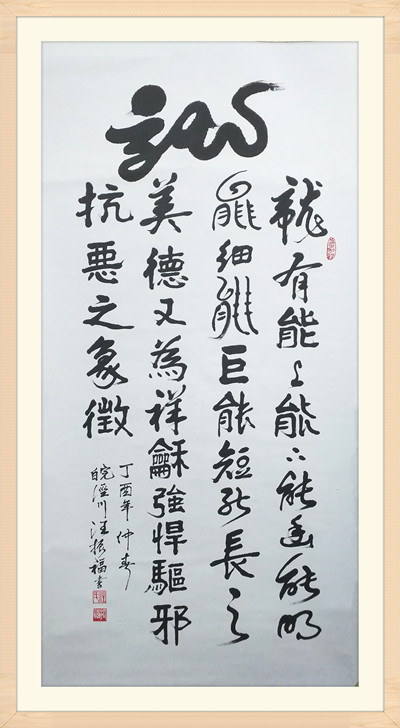 龍
龍有能上能下能幽能明
能細能巨能短能長之
美德又為祥龢強悍驅邪
抗惡之象徵
丁酉年仲春
皖涇川汪振福書